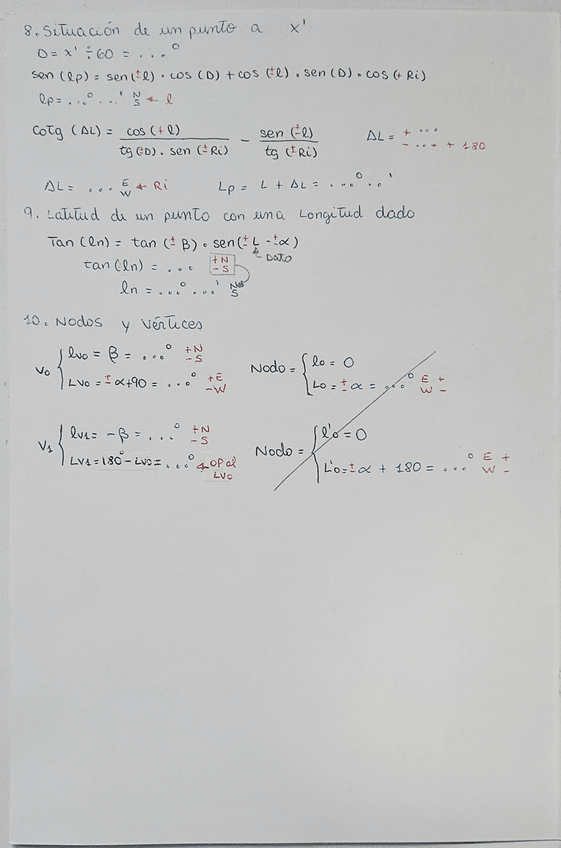 8. Situación de un punto a x'
D = x' ÷ 60 = ...°
sen (lp) = sen (±l) · cos (D) + cos (±l) · sen (D) · cos (± Ri)
lp = ...° ...' N/S ← l
Cotg (ΔL) = cos (±l) / tg (±D) · sen (±Ri) − sen (±l) / tg (±Ri)
ΔL = + ...
− ... + 180
ΔL = ... E/W ← Ri
Lp = L + ΔL = ...° ..'
9. Latitud de un punto con una Longitud dado
Tan (ln) = tan (± β) · sen (± L - ±α)
↳ DATO
tan (ln) = ... +N −S
ln = ...° ...' N/S
10. Nodos y Vértices
V0 { lv0 = β = ...° +N −S
Lv0 = ± α + 90 = ...° +E −W
Nodo = { lo = 0
Lo = ± α = ...° E + W −
V1 { lv1 = - β = ...° +N −S
Lv1 = 180° - Lv0 = ...° ← OP al Lv0
Nodo = { l'o = 0
L'o = ± α + 180 = ...° E + W −